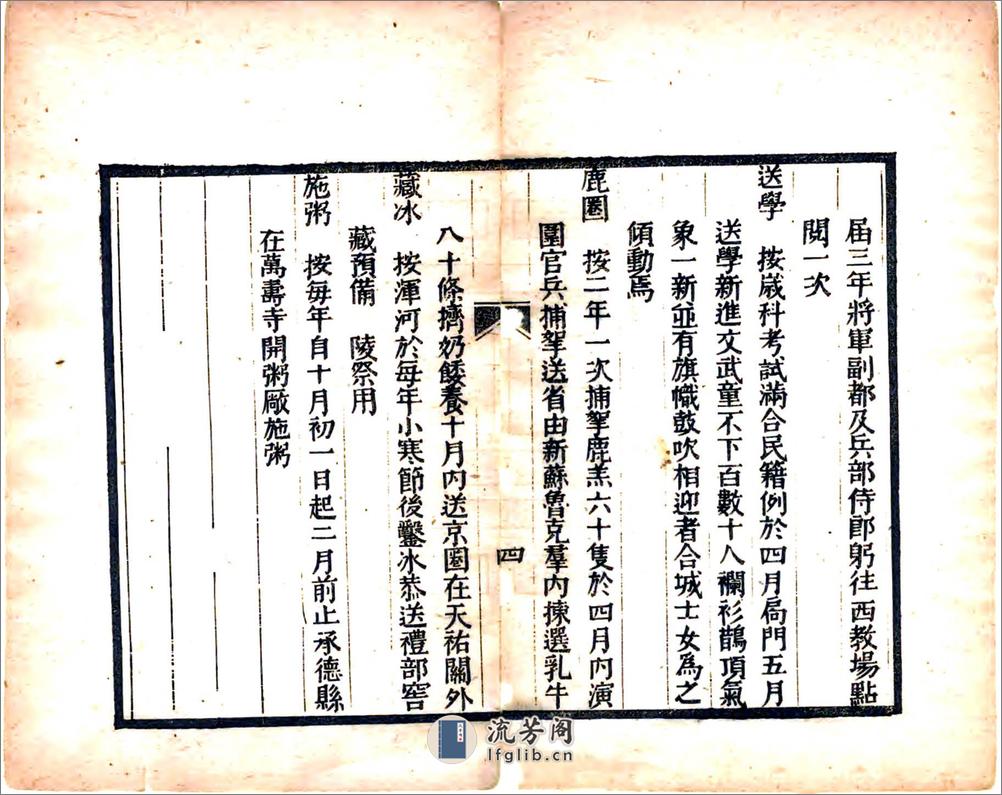 屆三年將軍副都及兵部侍郎躬往西教場點
閱一次
送學　按歲科考試滿合民籍例於四月扃門五月
送學新進文武童不下百數十八襴衫鵲頂氣
象一新並有旗幟鼓吹相迎者合城士女爲之
傾動焉
鹿圈　按二年一次捕拏鹿羔六十隻於四月內演
圍官兵捕拏送省由新蘇魯克羣內揀選乳牛
八十條擠奶餧養十月內送京圈在天祐關外
藏冰　按渾河於每年小寒節後鑿冰恭送禮部窖
藏預備　陵祭用
施粥　按每年自十月初一日起三月前止承德縣
在萬壽寺開粥厰施粥
四
流芳阁
lfglib.cn